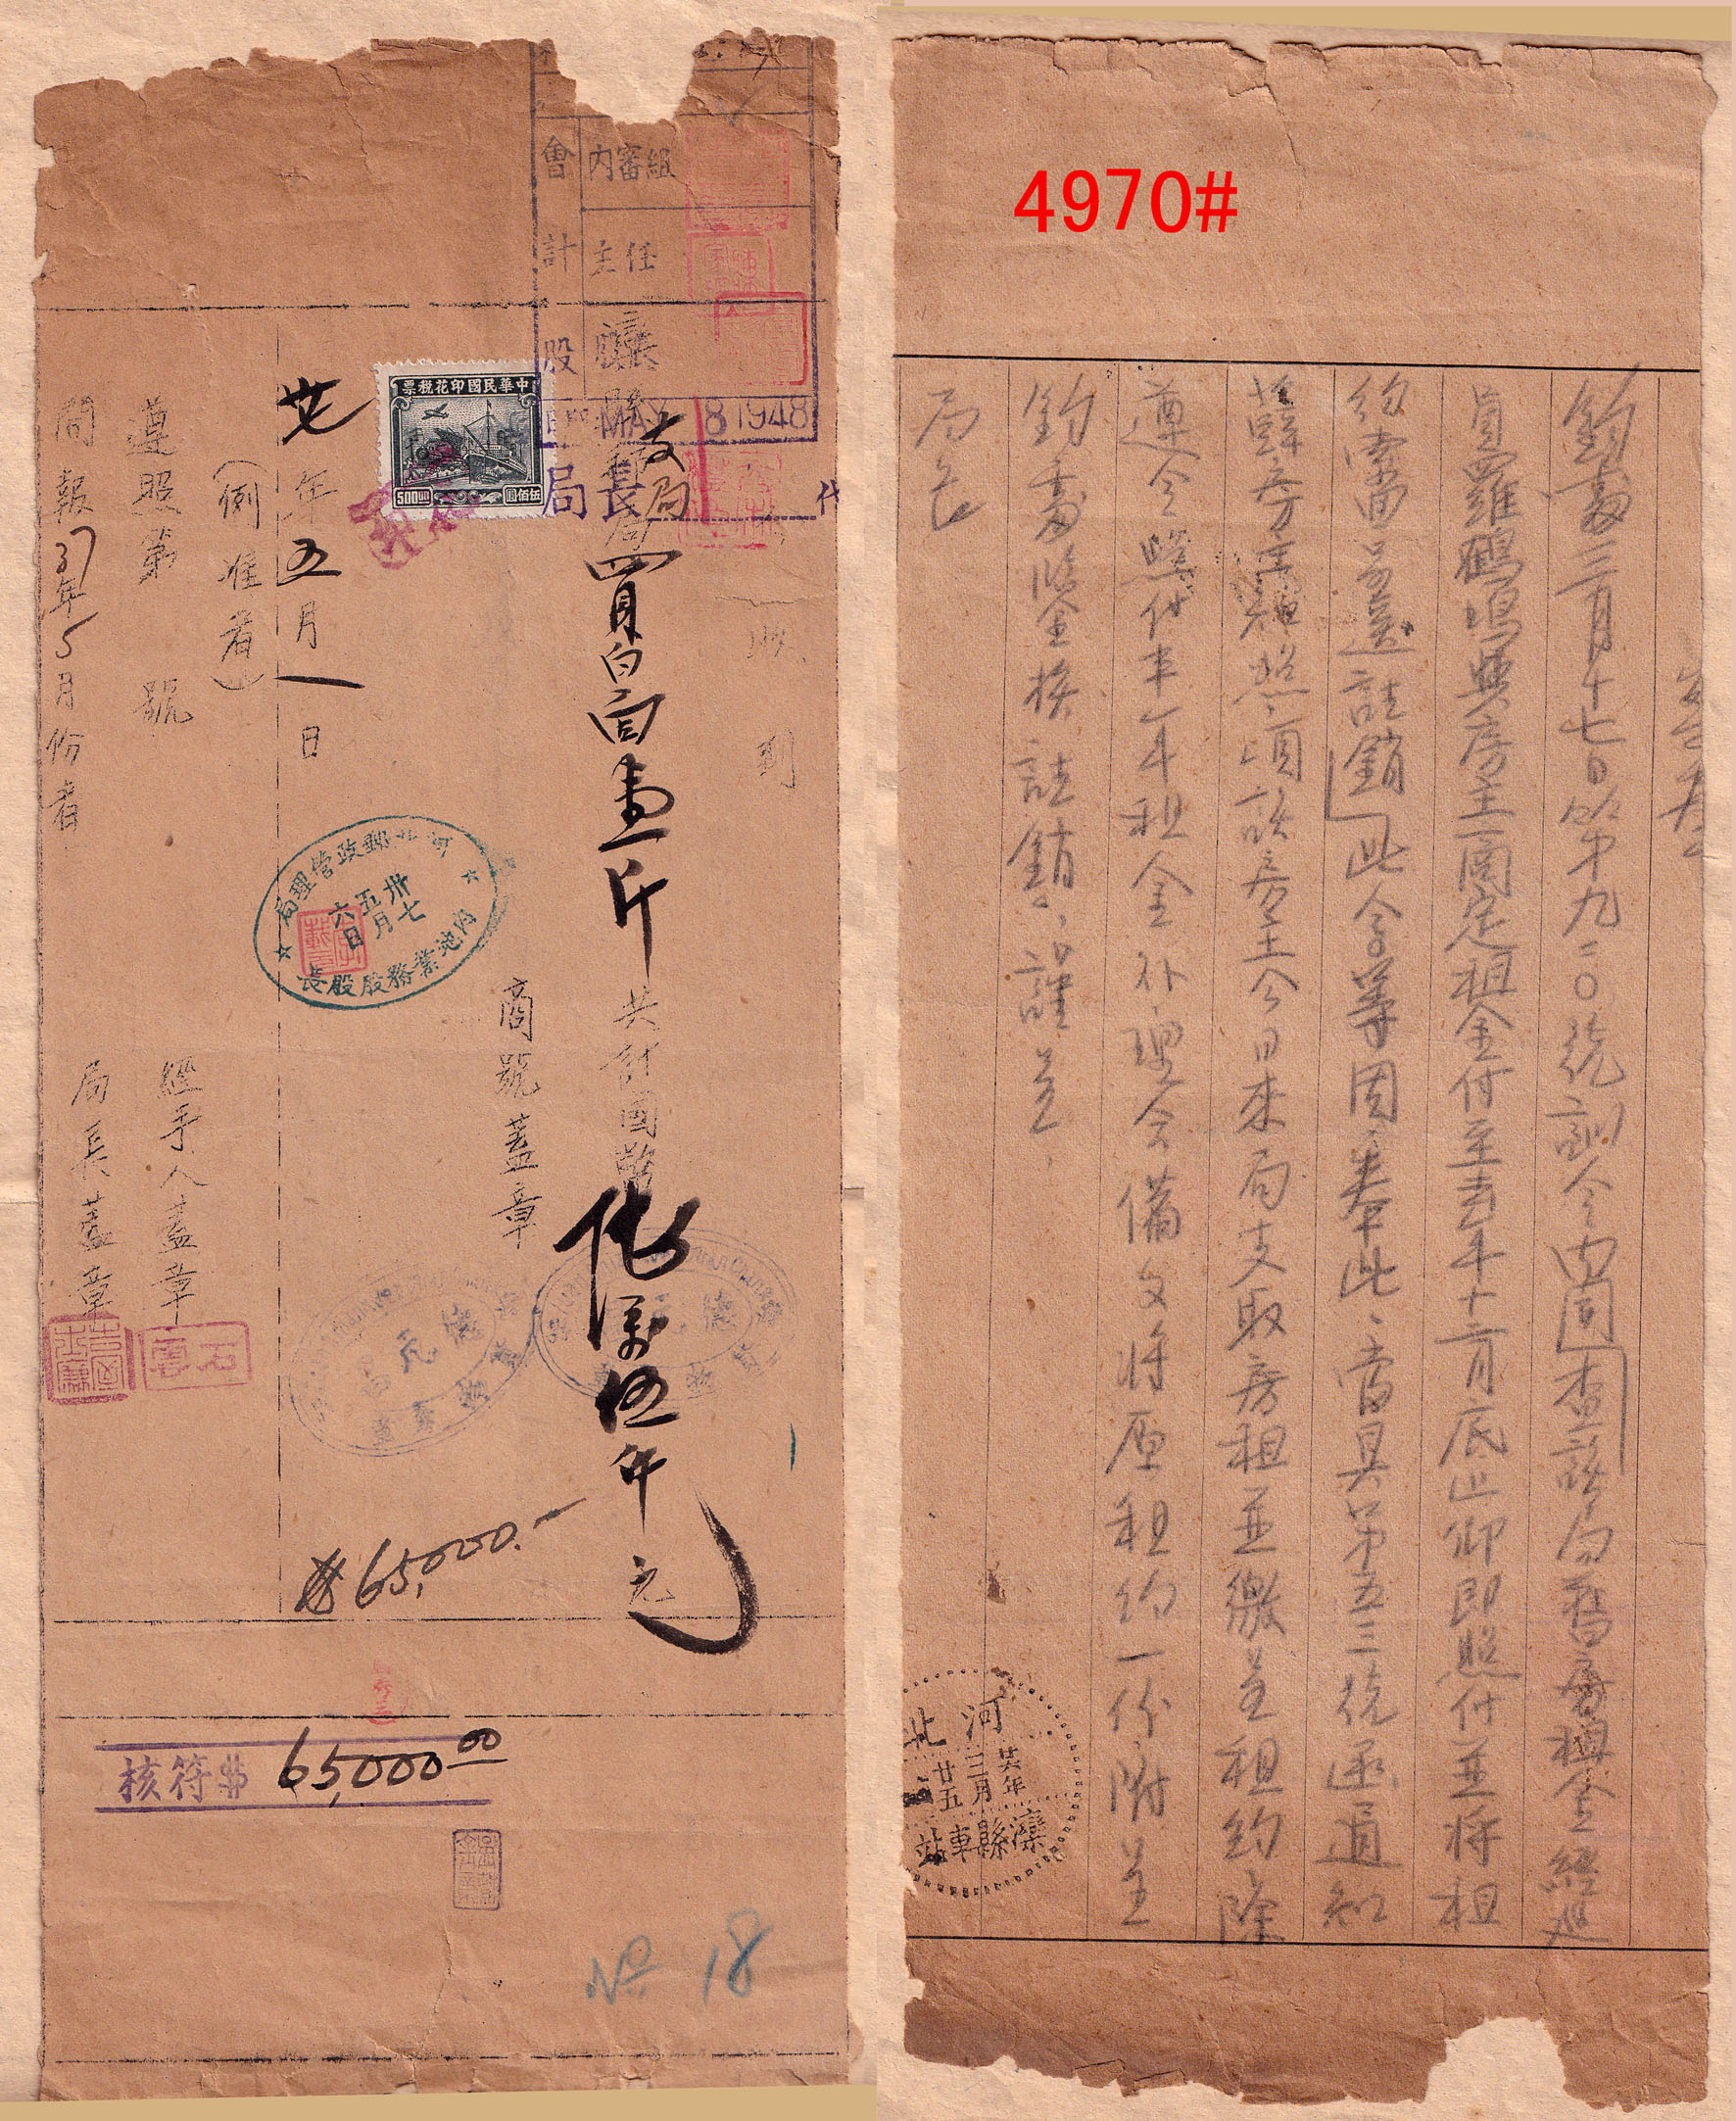 會計股
內審組
主任
MAY 8 1948
局長
代
中華民國印花稅票
50000
伍佰圓
收 到
灤縣郵局
支局
買白面壹斤共計國幣陸萬伍仟元
商號蓋章
德元
$65,000.-
卅七年五月一日
(例准者)
遵照第 號
間報37年5月份者
經手人蓋章
局長蓋章
河北郵政管理局
卅七
五月
六日
內地業務股股長
核符$ 65,000.00
No 18
4970#
鈞處三月十七日第九二〇號訓令內開查該局舊房租金經
員羅鶴鳴與房主商定租金付至去年十二月底止仰即照付並將租
約索回呈送註銷此令等因奉此當具第五三號函通知
薛房主 照頃該房主今日來局支取房租並繳呈租約除
遵令照付半年租金外理合備文將原租約一份附呈
鈞處鑒核註銷謹呈
局長
河北
廿六年
三月
廿五
灤縣車站